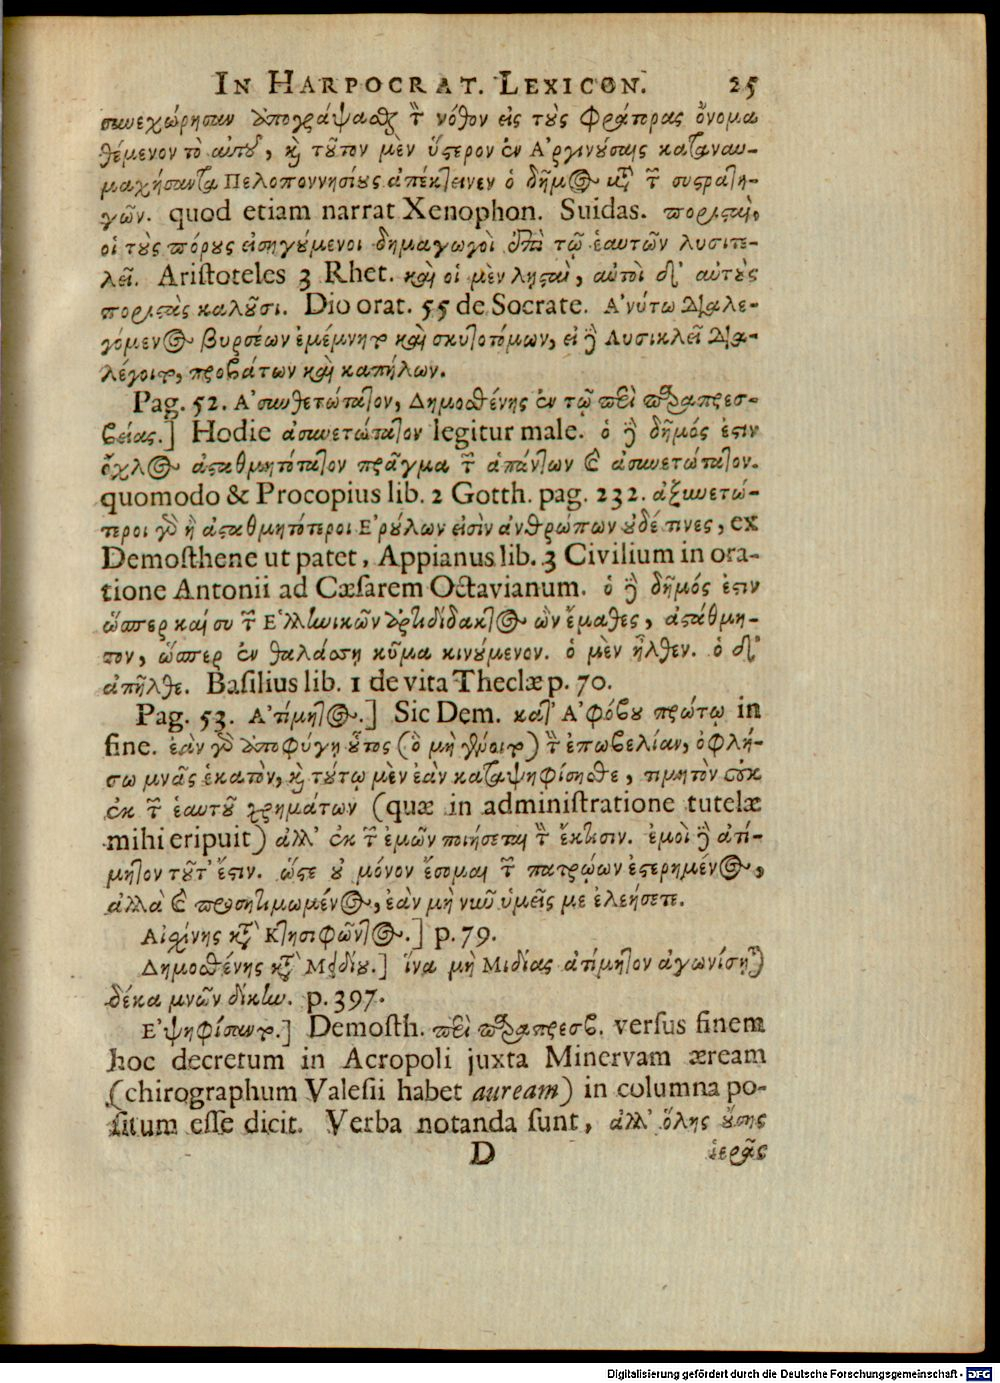 IN HARPOCRAT. LEXICON. 25
συνεχώρησαν ἀπογράψασθαι τὸν νόθον εἰς τοὺς φράτορας ὄνομα
θέμενον τὸ αὑτοῦ, καὶ τοῦτον μὲν ὕστερον ἐν Ἀργινούσαις καταναυ-
μαχήσαντα Πελοποννησίους ἀπέκτεινεν ὁ δῆμος μετὰ τῶν συστρατη-
γῶν. quod etiam narrat Xenophon. Suidas. πορισταὶ,
οἱ τοὺς πόρους εἰσηγούμενοι δημαγωγοὶ ἐπὶ τῷ ἑαυτῶν λυσιτε-
λεῖ. Aristoteles 3 Rhet. καὶ οἱ μὲν λῃσταὶ, αὐτοὶ δ' αὐτοὺς
ποριστὰς καλοῦσι. Dio orat. 55 de Socrate. Ἀνύτῳ διαλε-
γόμενος βυρσέων ἐμέμνητο καὶ σκυτοτόμων, εἰ δὲ Λυσικλεῖ δια-
λέγοιτο, προβάτων καὶ καπήλων.
Pag. 52. Ἀσυνθετώτατον, Δημοσθένης ἐν τῷ περὶ παραπρεσ-
βείας.] Hodie ἀσυνετώτατον legitur male. ὁ δὲ δῆμός ἐστιν
ὄχλος ἀσταθμητότατον πρᾶγμα τῶν ἁπάντων καὶ ἀσυνετώτατον.
quomodo & Procopius lib. 2 Gotth. pag. 232. ἀξυνετώ-
τεροι γὰρ ἢ ἀσταθμητότεροι Ἐρούλων εἰσὶν ἀνθρώπων οὐδέ τινες, ex
Demosthene ut patet, Appianus lib. 3 Civilium in ora-
tione Antonii ad Cæsarem Octavianum. ὁ δὲ δῆμός ἐστιν
ὥσπερ καὶ συ τῶν Ἑλληνικῶν ἀρτιδίδακτος ὢν ἔμαθες, ἀστάθμη-
τον, ὥσπερ ἐν θαλάσσῃ κῦμα κινούμενον. ὁ μὲν ἦλθεν. ὁ δ'
ἀπῆλθε. Basilius lib. 1 de vita Theclæ p. 70.
Pag. 53. Ἀτίμητος.] Sic Dem. κατ' Ἀφόβου πρώτῳ in
fine. ἐὰν γὰρ ἀποφύγῃ οὗτος (ὃ μὴ γένοιτο) τὴν ἐπωβελίαν, ὀφλή-
σω μνᾶς ἑκατὸν, καὶ τούτῳ μὲν ἐὰν καταψηφίσησθε, τιμητὸν οὐκ
ἐκ τῶν ἑαυτοῦ χρημάτων (quæ in administratione tutelæ
mihi eripuit) ἀλλ' ἐκ τῶν ἐμῶν ποιήσεται τὴν ἔκτισιν. ἐμοὶ δὲ ἀτί-
μητον τοῦτ' ἔστιν. ὥστε οὐ μόνον ἔσομαι τῶν πατρῴων ἐστερημένος,
ἀλλὰ καὶ προσητιμωμένος, ἐὰν μὴ νῦν ὑμεῖς με ἐλεήσετε.
Αἰσχίνης κατὰ Κτησιφῶντος.] p. 79.
Δημοσθένης κατὰ Μειδίου.] ἵνα μὴ Μιδίας ἀτίμητον ἀγωνίσηται
δέκα μνῶν δίκην. p. 397.
Ἐψηφίσαντο.] Demosth. περὶ παραπρεσβ. versus finem
hoc decretum in Acropoli juxta Minervam æream
(chirographum Valesii habet auream) in columna po-
situm esse dicit. Verba notanda sunt, ἀλλ' ὅλης οὔσης
D ἱερᾶς
Digitalisierung gefördert durch die Deutsche Forschungsgemeinschaft - DFG